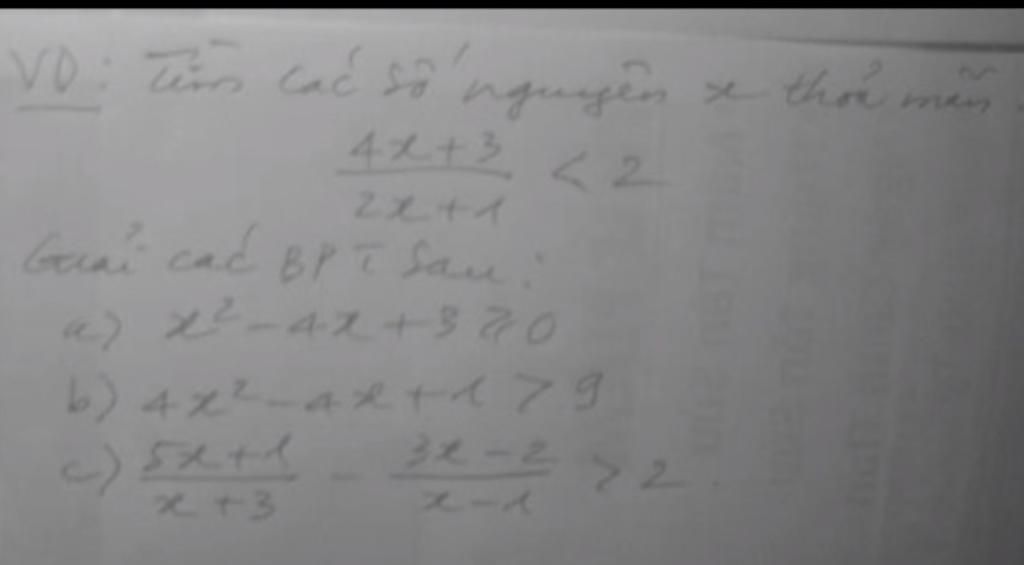 VD: Tìm các số nguyên x thoả mãn.
\frac{4x+3}{2x+1} < 2
Giải các BPT sau:
a) x² - 4x + 3 ≥ 0
b) 4x² - 4x + 1 > 9
c) \frac{5x+1}{x+3} - \frac{3x-2}{x-1} > 2.